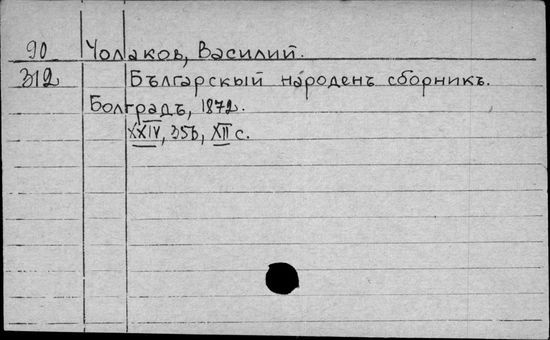 90 Чолаков, Василий.
312 Бългaрскый нáроденъ сборникъ.
Болградъ, 1872.
XXIV, 356, XII с.